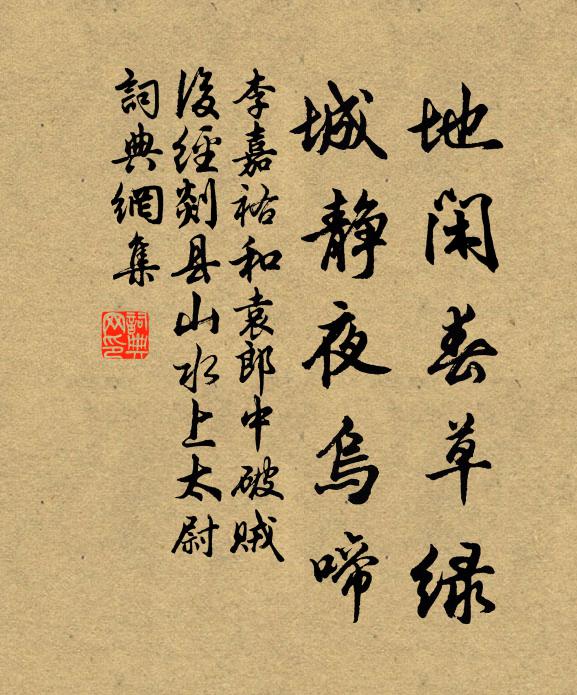 地闲春草绿
城静夜乌啼
李嘉祐和袁郎中破贼
後經剡县山水上太尉
詞典網集
詞典网印